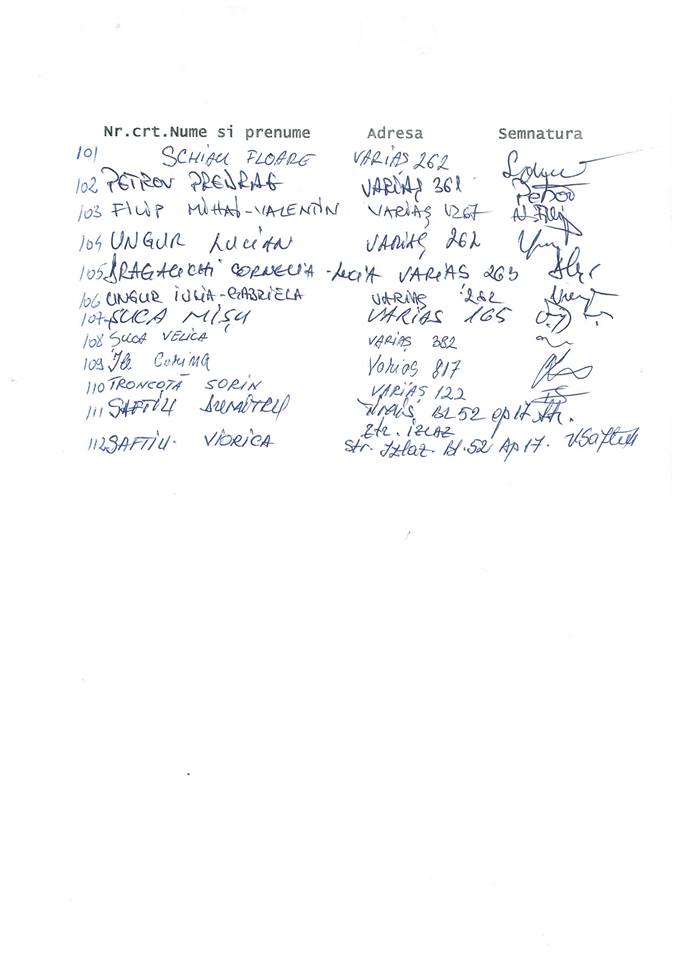 Nr.crt.Nume si prenume Adresa Semnatura
101 SCHIAU FLOARE VARIAS 262
102 PETROV PREDRAG VARIAȘ 361 Petrov
103 FILIP MIHAI-VALENTIN VARIAȘ 1267
104 UNGUR LUCIAN VARIAȘ 262
105 CORNELIA-LUCIA VARIAS 263
106 UNGUR IULIA-GABRIELA VARIAȘ 262
107 SUCA MIȘU VARIAS 165
108 SUCA VELICA VARIAȘ 382
109 Variaș 817
110 TRONCOTĂ SORIN VARIAȘ 122
111 SAFTIU DUMITRU BL 52 ap 17 Str. IZLAZ
112 SAFTIU VIORICA Str. Izlaz Bl. 52 Ap 17. VSaftiu